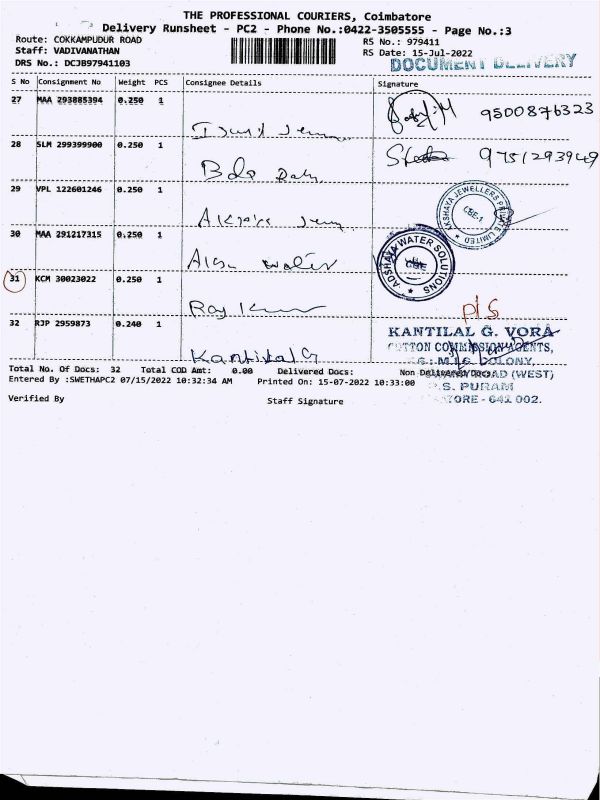 THE PROFESSIONAL COURIERS, Coimbatore
Delivery Runsheet - PC2 - Phone No.:0422-3505555 - Page No.:3
Route: COKKAMPUDUR ROAD
RS No.: 979411
Staff: VADIVANATHAN
RS Date: 15-Jul-2022
DRS No.: DCJB97941103
DOCUMENT DELIVERY
S No Consignment No Weight PCS Consignee Details Signature
27 MAA 293885394 0.250 1 9500876323
28 SLM 299399900 0.250 1 9751293949
29 VPL 122601246 0.250 1
AKSHAYA JEWELLERS PRIVATE LIMITED
CBE-1
30 MAA 291217315 0.250 1
ADSHAYA WATER SOLUTIONS
CBE
31 KCM 30023022 0.250 1
Raj Kumar
P/S
32 RJP 2959873 0.240 1
Kantilal G
KANTILAL G. VORA
COTTON COMMISSION AGENTS,
COLONY,
ROAD (WEST)
R.S. PURAM
641 002.
Total No. Of Docs: 32 Total COD Amt: 0.00 Delivered Docs: Non Delivered Docs:
Entered By :SWETHAPC2 07/15/2022 10:32:34 AM Printed On: 15-07-2022 10:33:00
Verified By Staff Signature